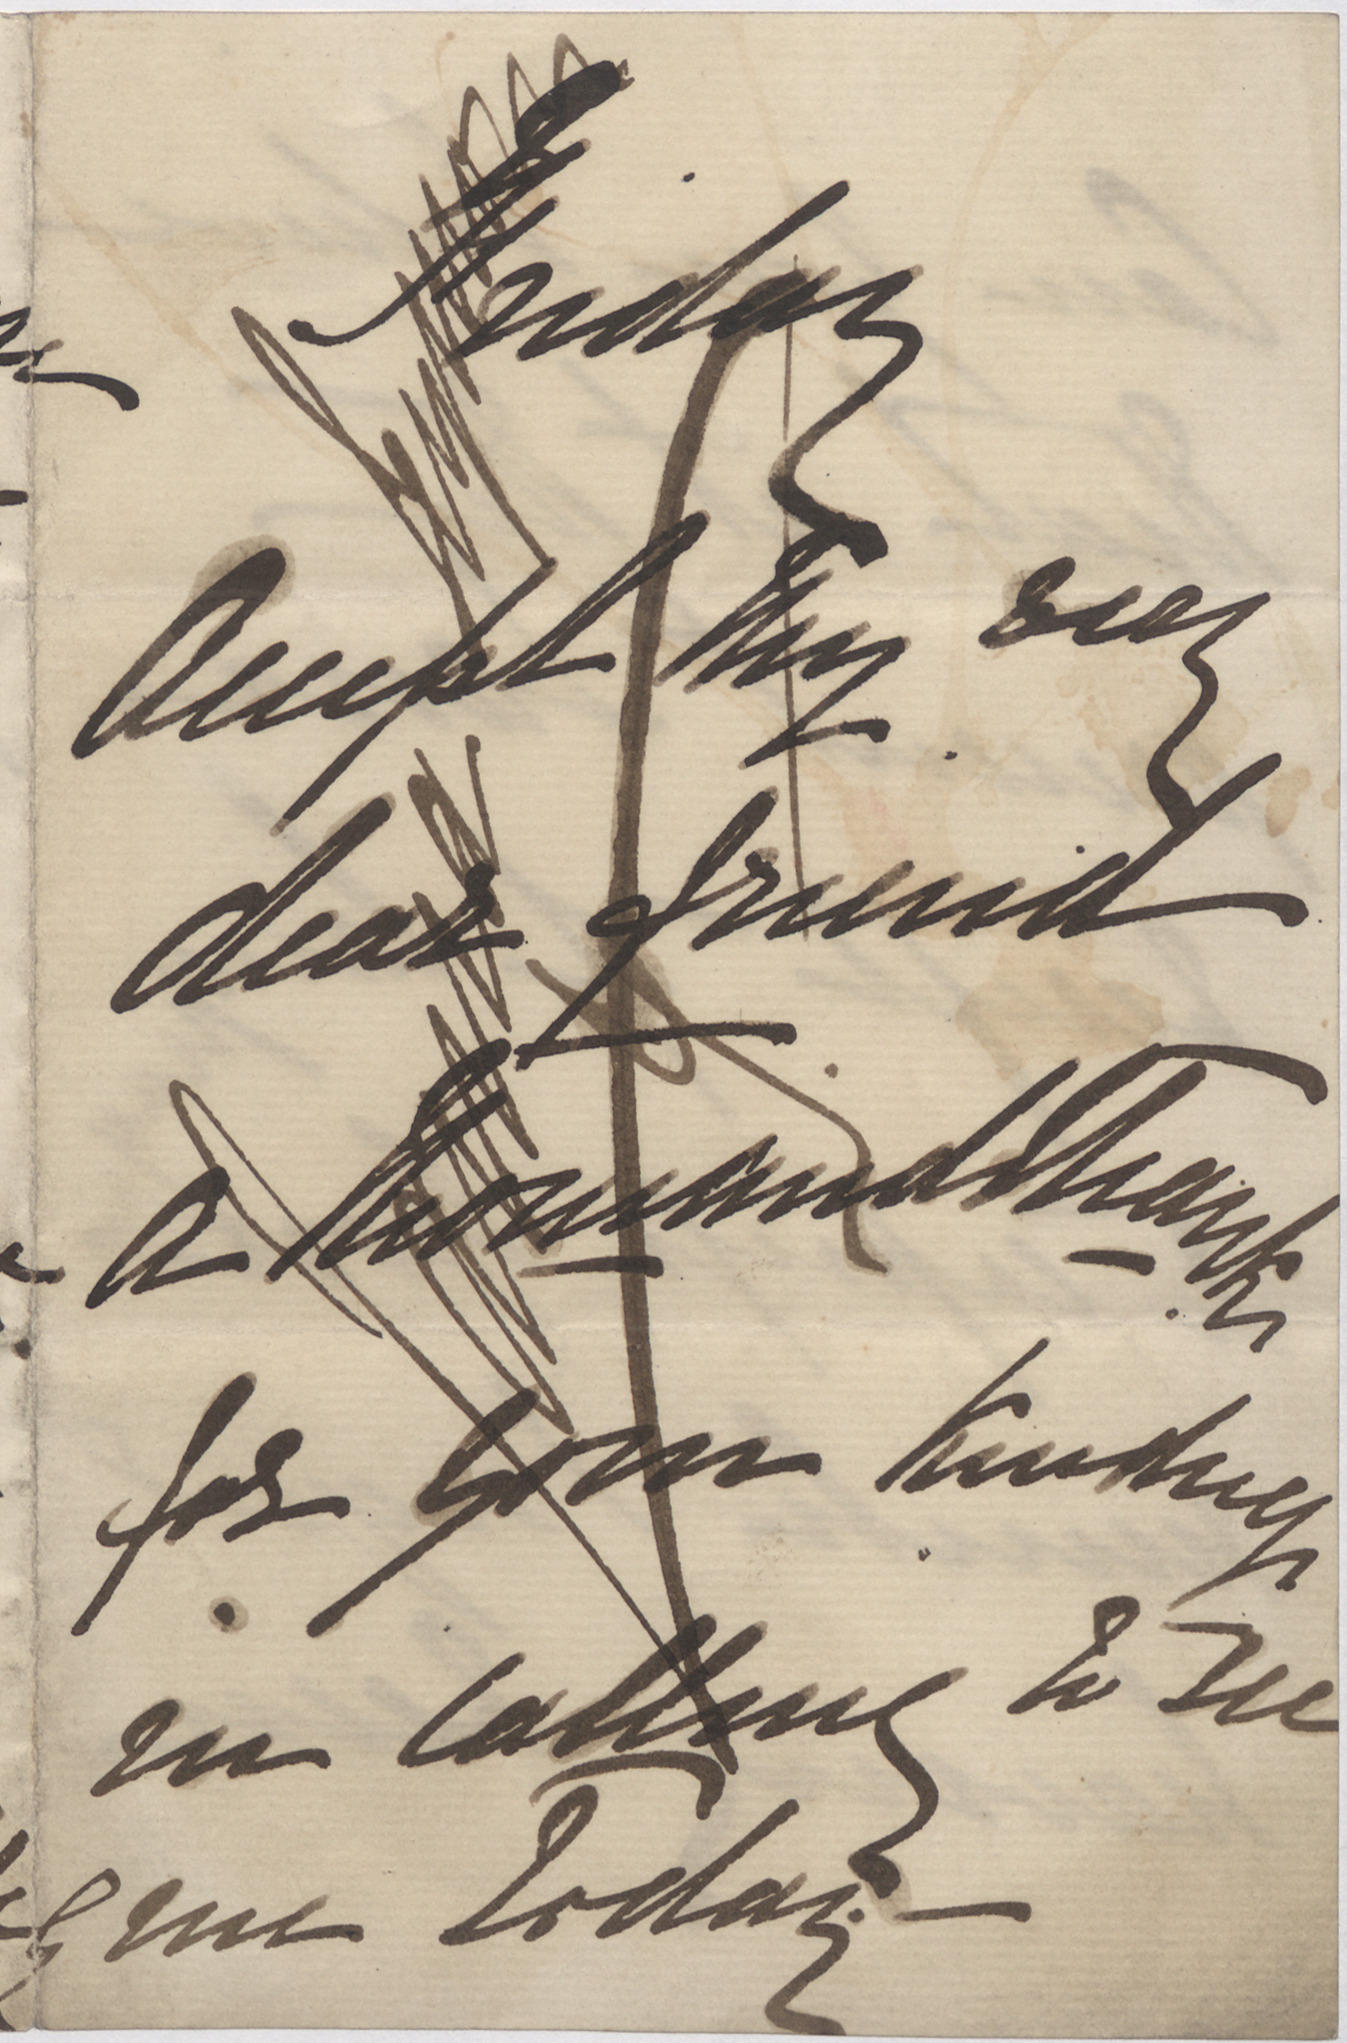 Friday
Accept my very
dear friend
a thousand thanks
for your kindness
in calling to see
me today